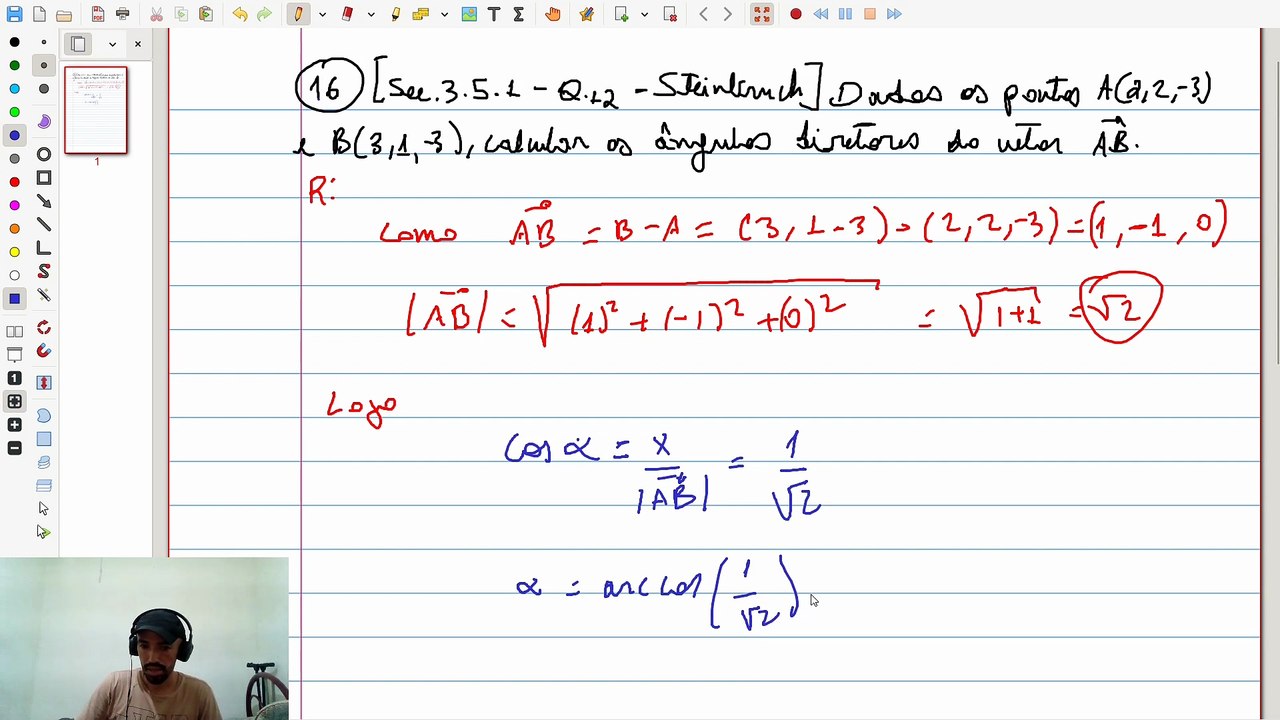 16 [Sec.3.5.1 - Q.12 - Steinbruch] Dados os pontos A(2,2,-3)
e B(3,1,-3), calcular os ângulos diretores do vetor AB.
R:
como AB = B - A = (3, 1 -3) - (2, 2, -3) = (1, -1, 0)
|AB| = √(1)² + (-1)² + (0)² = √1+1 = √2
Logo
cos α = x/|AB| = 1/√2
α = arc cos (1/√2)
1